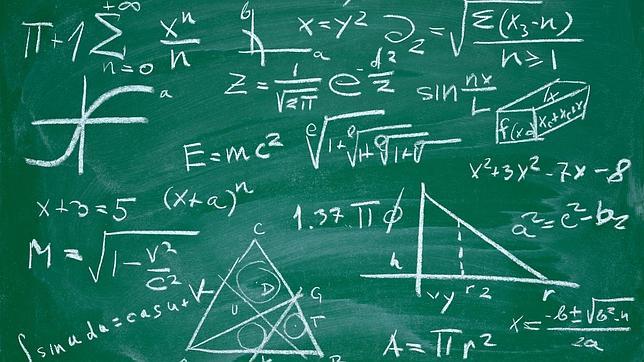 π+1 Σ +∞ n=0 xⁿ/n
b a
x=y²
∂₂=√Σ(x₃-n) / n≥1
a
Z = 1/√2π e -d²/2
sin nx/L
lx
f(x)
E=mc²
e√1+√1+√1+√
x²+3x²-7x-8
x+3=5
(x+a)ⁿ
1.37 π ϕ
a²=c²-b₂
M=√1-v²/c²
h
v y r 2 r
C
D
U
G
T
∫sin u du=cos u+K
A=πr²
x=-b±√b²-4/2a